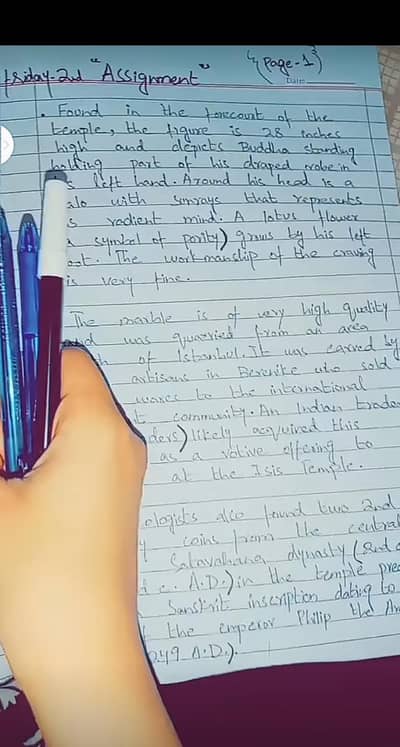 Friday-2nd "Assignment" {page-1}
Date:
. Found in the forecourt of the
temple, the figure is 28 inches
high and depicts Buddha standing
holding part of his draped robe in
left hand. Around his head is a
alo with sunrays that represents
s radient mind. A lotus flower
a symbol of pority) grows by his left
oot. The workmanslip of the craving
is very fine.
The marble is of very high quality
and was quarried from an area
of Istanbul. It was carved by
artisans in Berenike who sold
wares to the international
t community. An Indian trade
ders) likely acquired this
as a votive offering to
at the Isis Temple.
ologists also found two 2nd
y coins from the central
Satavahana dynasty (2nd c
f c. A.D.) in the temple pre
Sanskrit inscription dating to
the emperor Philip the Ar
249 A.D.).